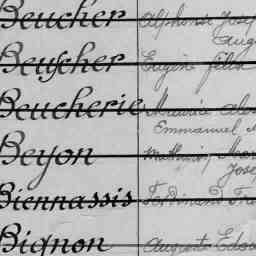 Beucher Alphonse Jose
Aug
Beuscher Eugène félix
Beucherie Maurice Alex
Emmanuel
Beyon Mathurin Mar
Jose
Biennassis Ferdinand Fra
Bignon Auguste Edou